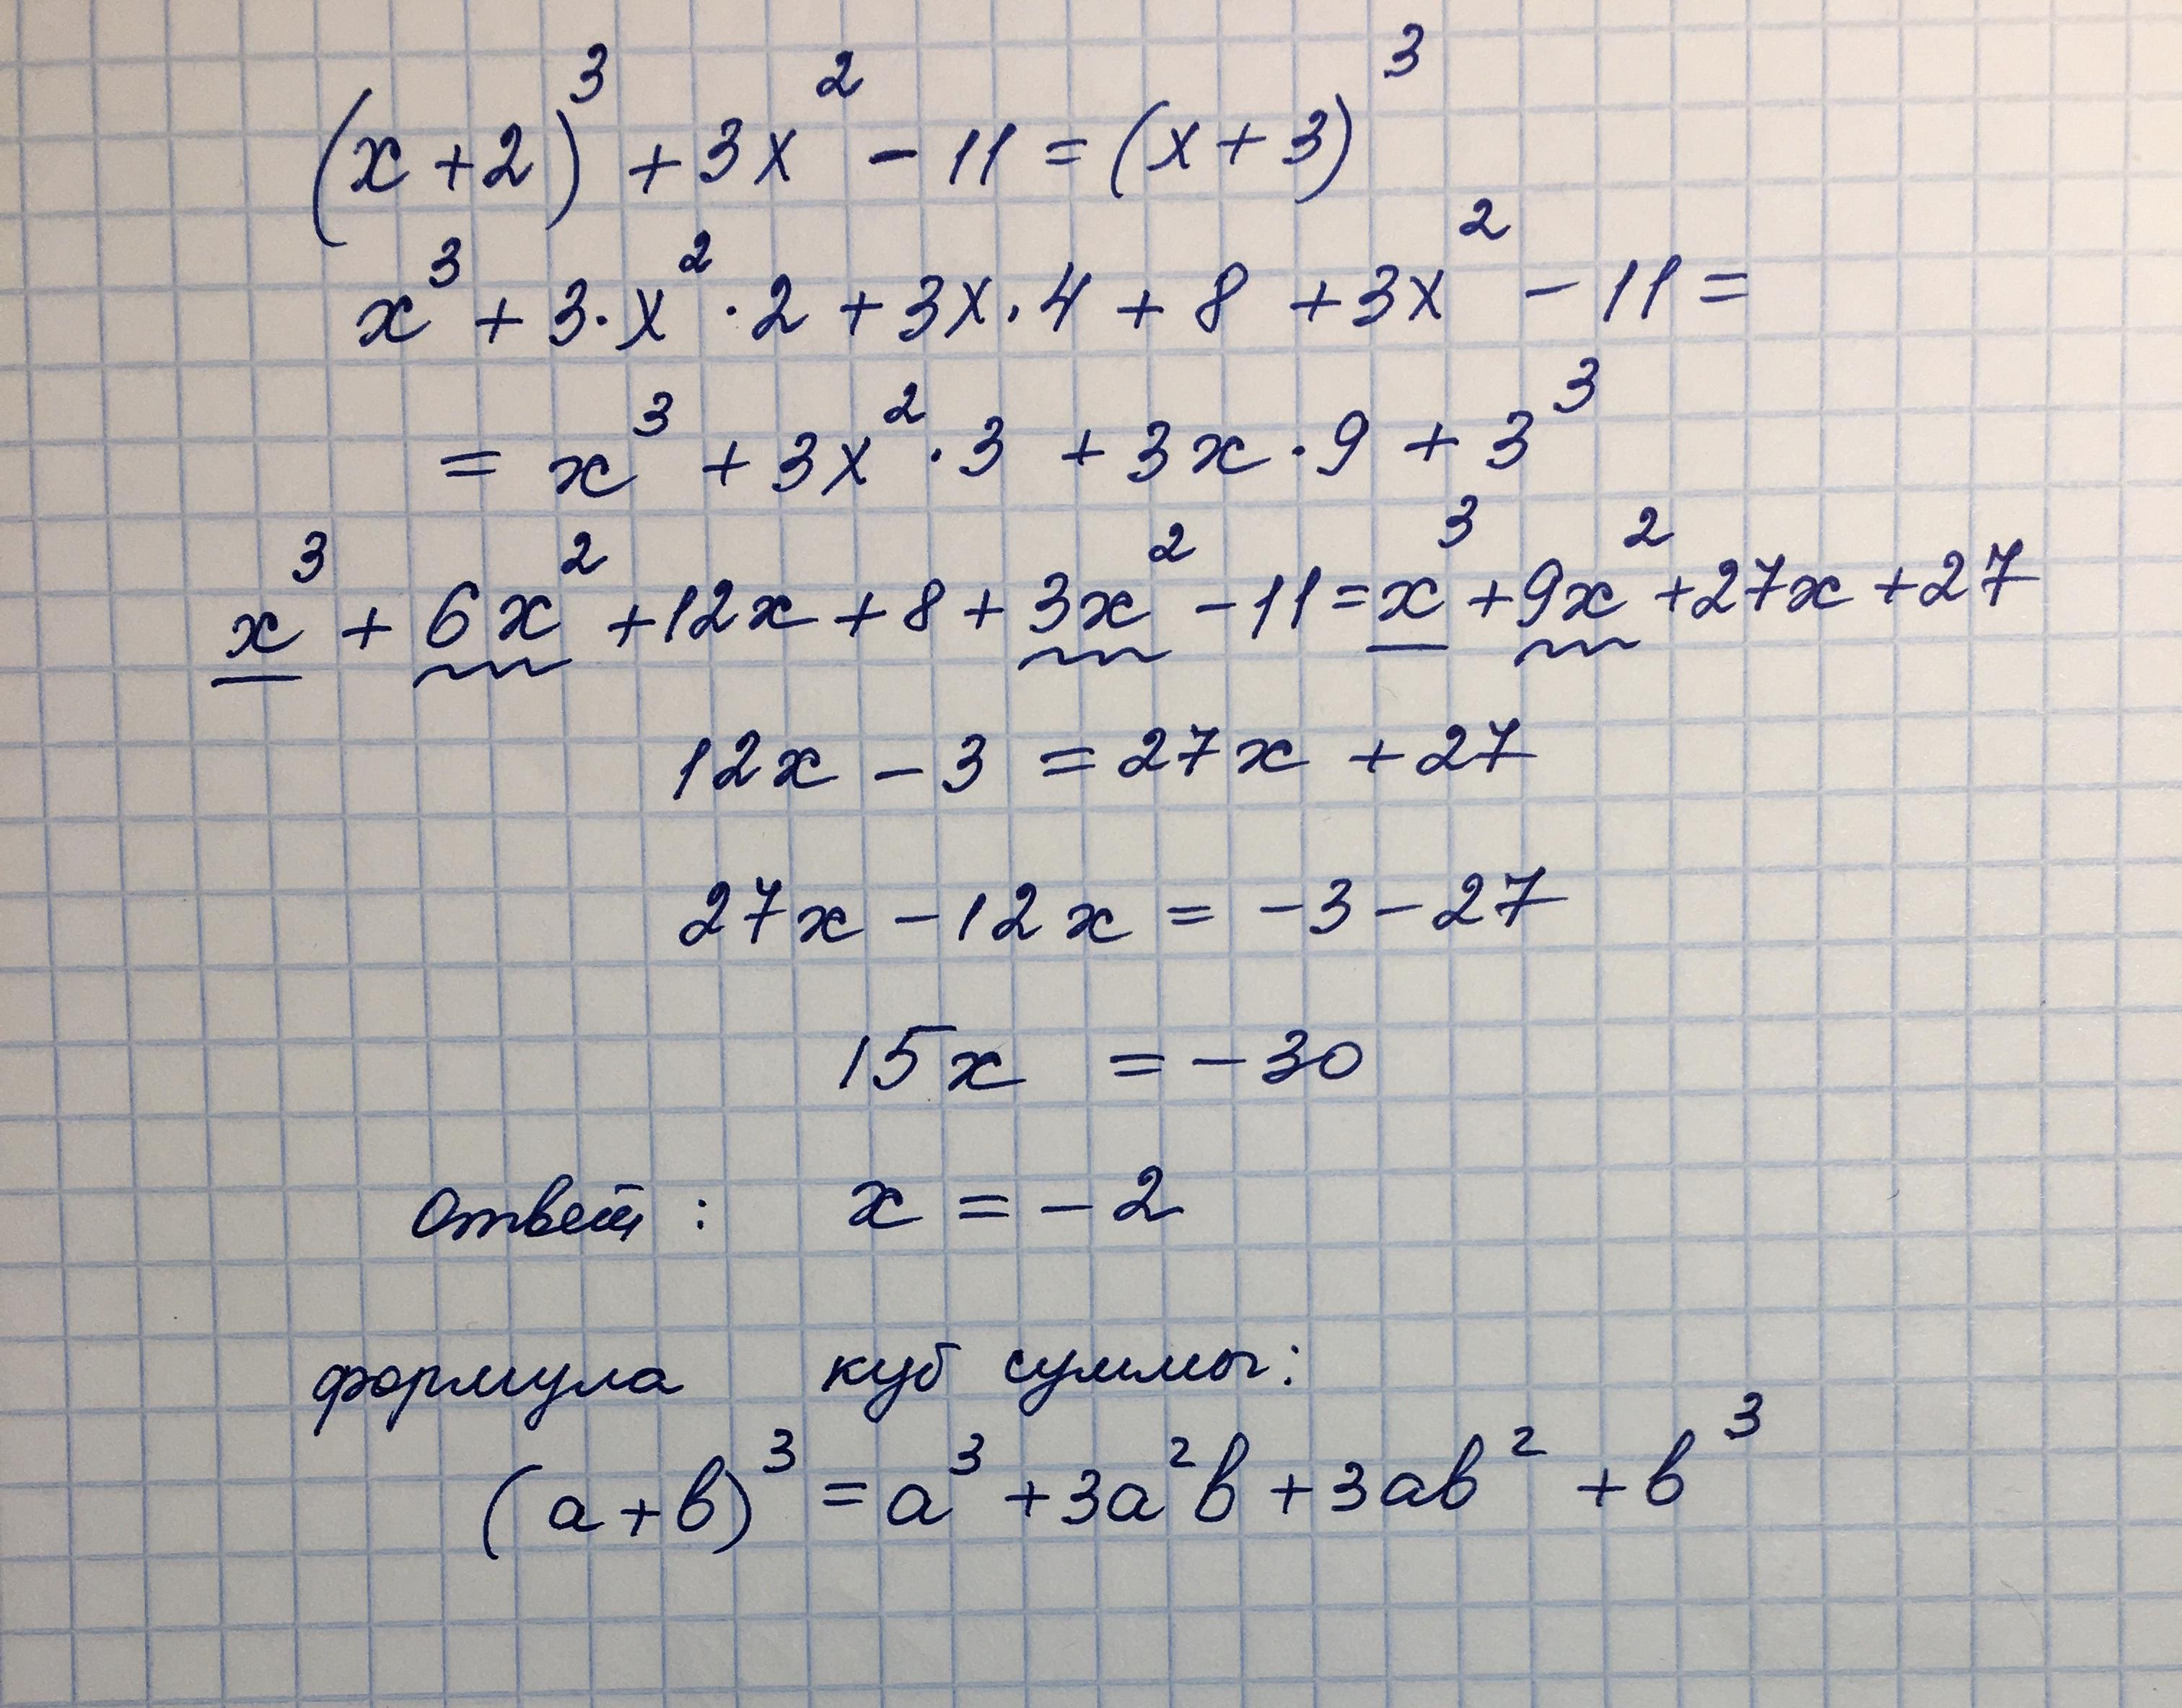 (x+2)³ + 3x² - 11 = (x+3)³
x³ + 3·x²·2 + 3x·4 + 8 + 3x² - 11 =
= x³ + 3x²·3 + 3x·9 + 3³
x³ + 6x² + 12x + 8 + 3x² - 11 = x³ + 9x² + 27x + 27
12x - 3 = 27x + 27
27x - 12x = -3 - 27
15x = -30
Ответ: x = -2
формула куб суммы:
(a+b)³ = a³ + 3a²b + 3ab² + b³